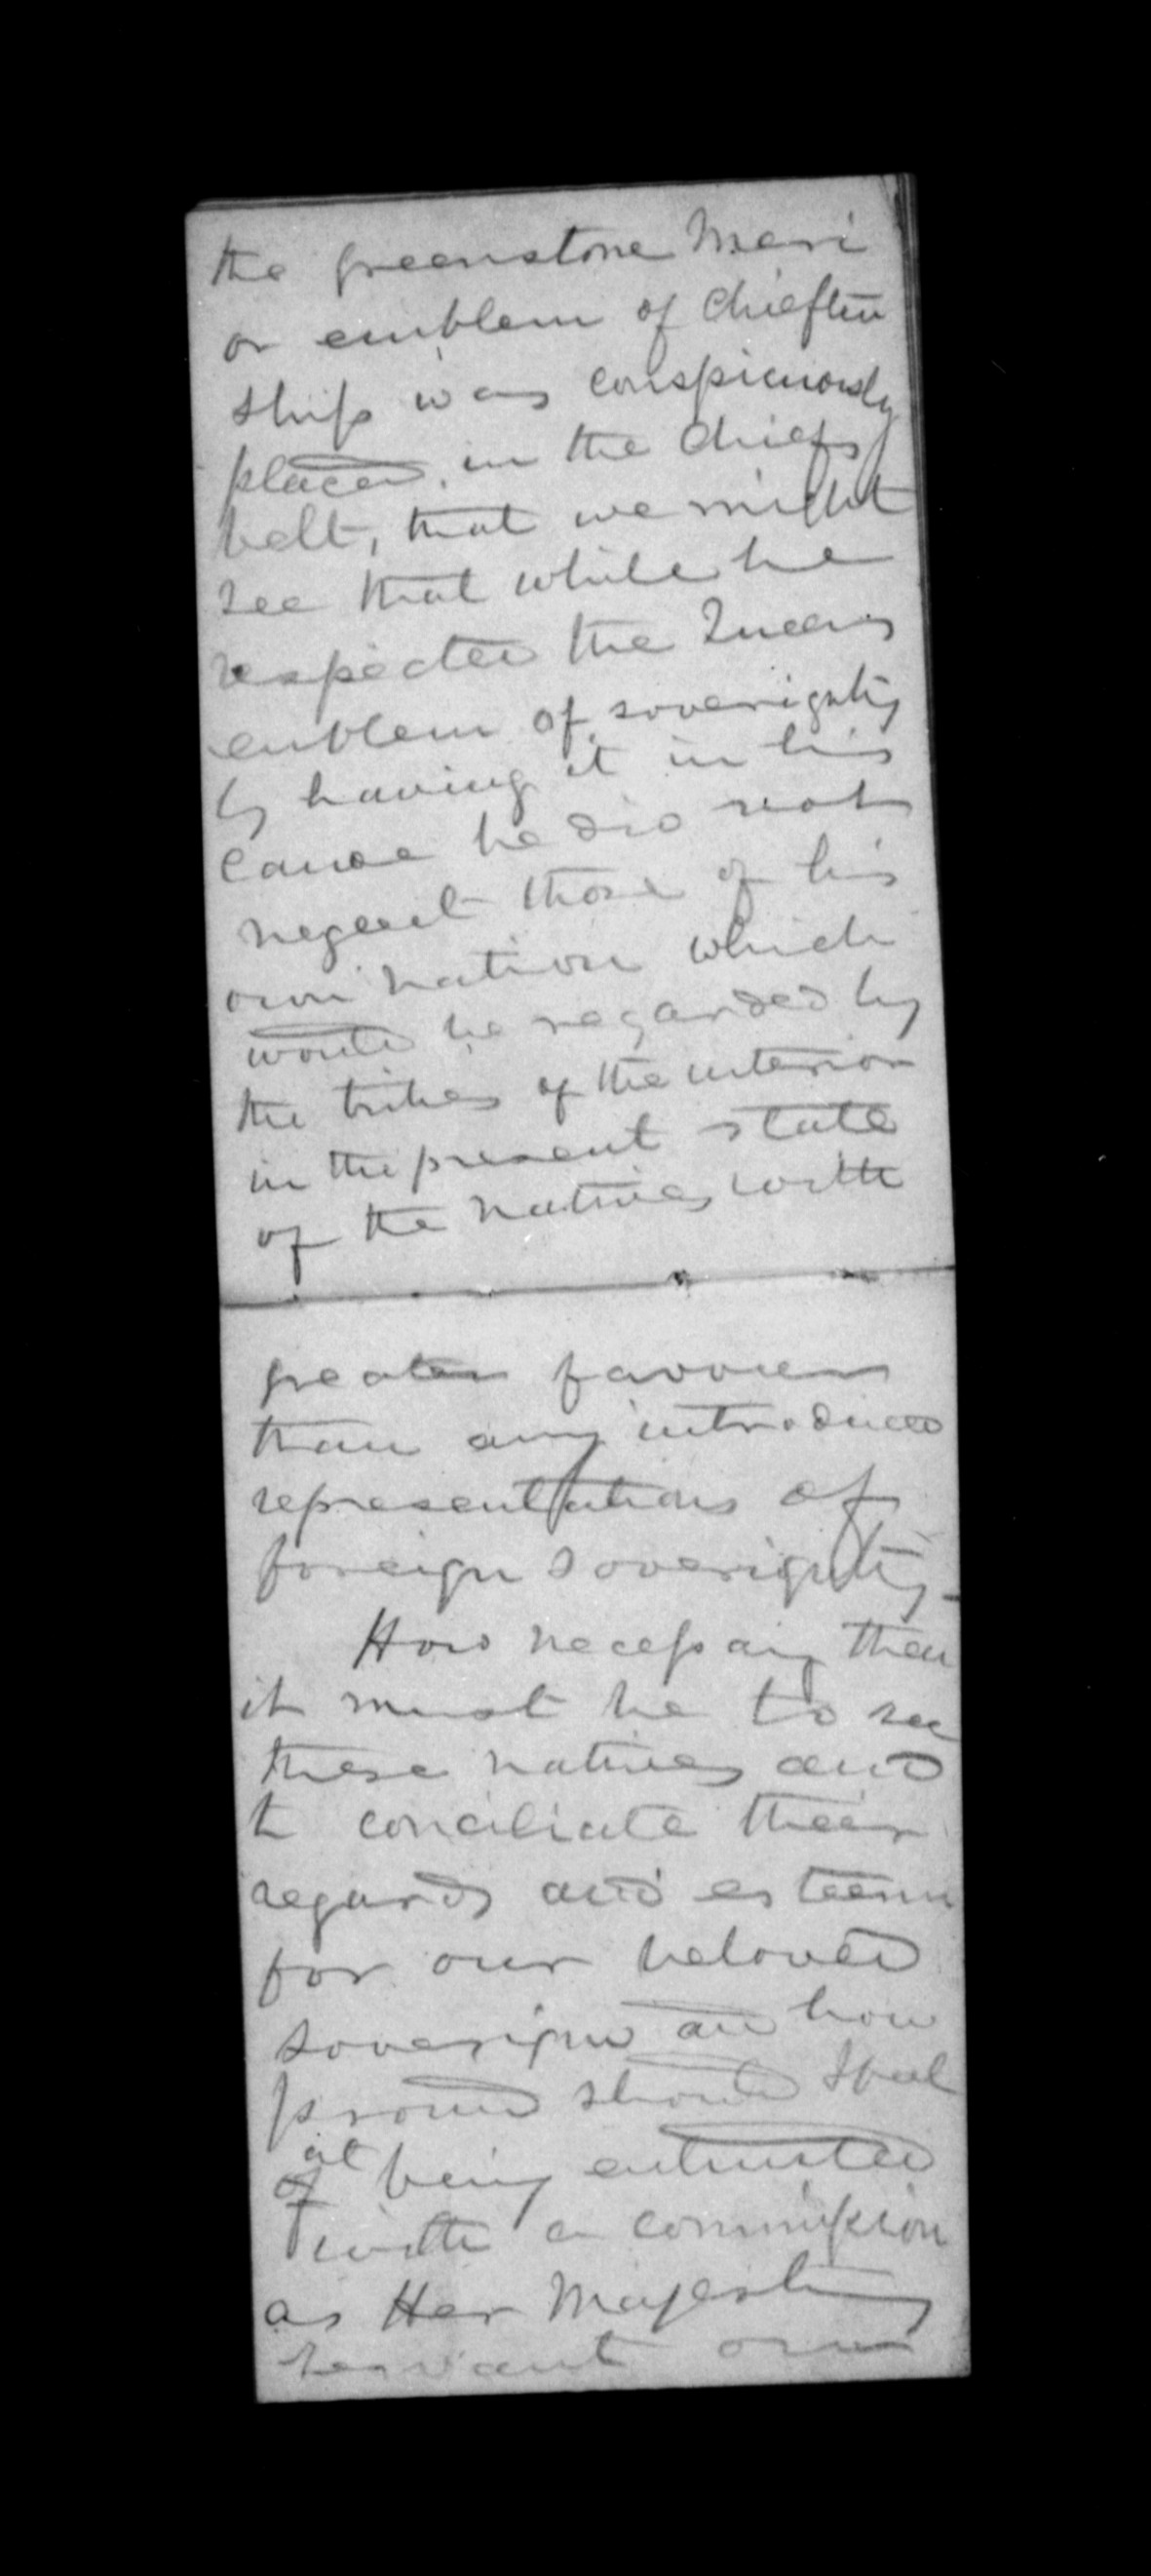 the greenstone Meri
or emblem of Chieftin
ship was conspicuously
placed, in the Chiefs
belt, that we might
see that while he
respected the Queens
emblem of soverignty
by having it in his
Canoe he did not
neglect those of his
own nation which
would be regarded by
the tribes of the interior
in the present state
of the natives with
greater favour
than any introduced
representations of
foreign soverignty -
How necessary then
it must be to see
these natives and
to conciliate their
regards and esteem
for our beloved
soverign and how
proud should I feel
at
of being entrusted
with a commission
as Her Majesty
servant our